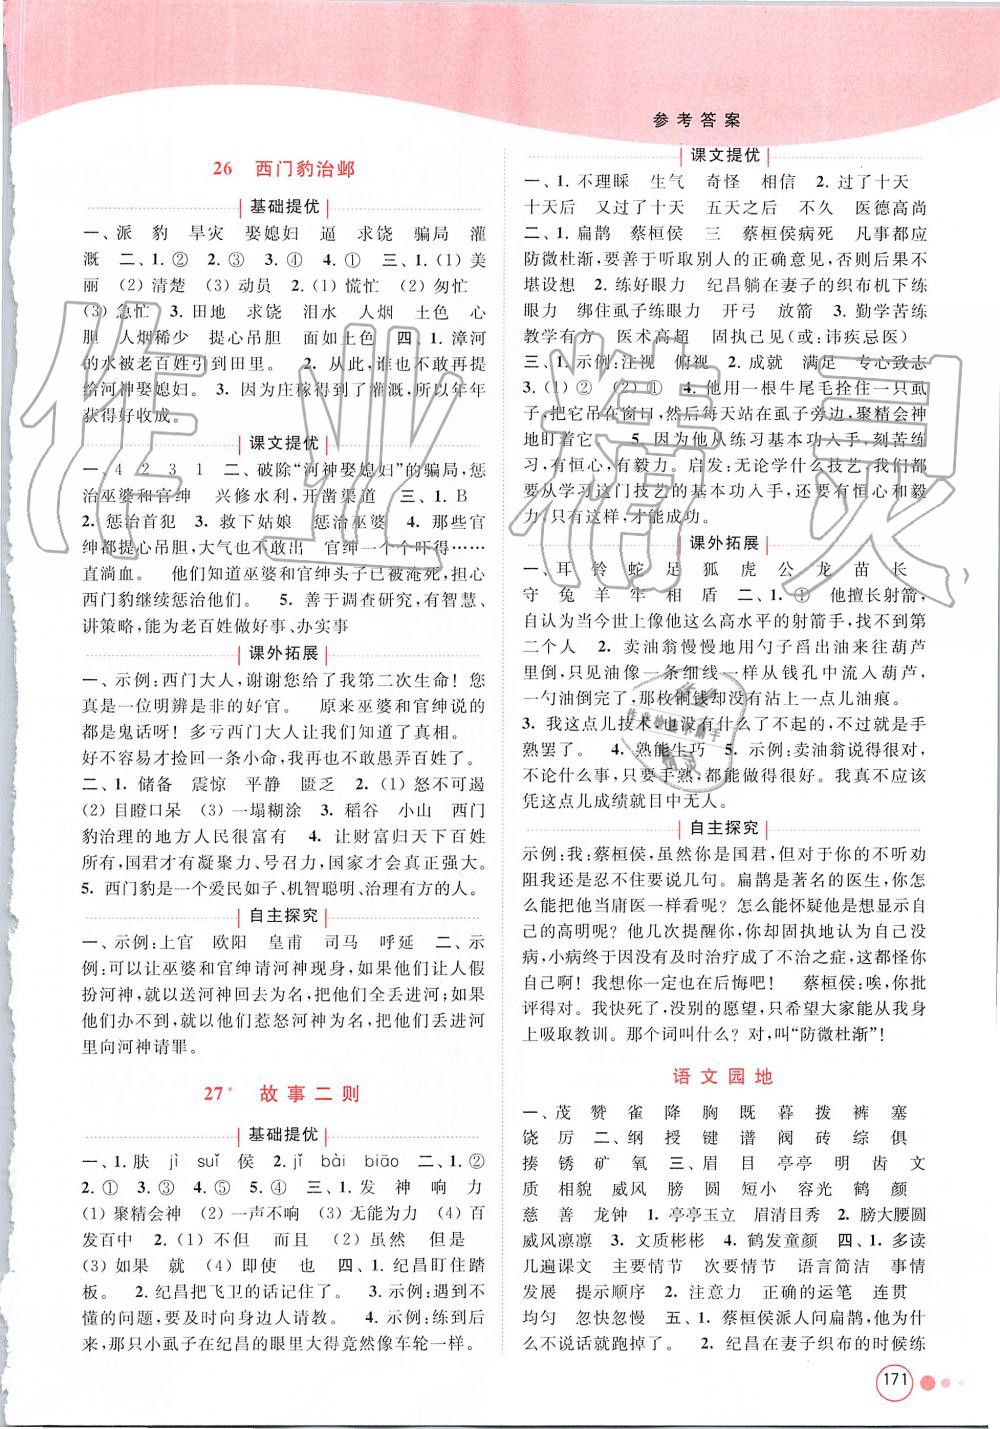 参考答案
26 西门豹治邺
基础提优
一、派 豹 旱灾 娶媳妇 逼 求饶 骗局 灌
溉 二、1. ② 2. ③ 3. ④ 4. ① 三、1. (1) 美
丽 (2) 清楚 (3) 动员 2. (1) 慌忙 (2) 匆忙
(3) 急忙 3. 田地 求饶 泪水 人烟 土色 心
胆 人烟稀少 提心吊胆 面如土色 四、1. 漳河
的水被老百姓引到田里。 2. 从此,谁也不敢再提
给河神娶媳妇。 3. 因为庄稼得到了灌溉,所以年年
获得好收成。
课文提优
一、4 2 3 1 二、破除“河神娶媳妇”的骗局,惩
治巫婆和官绅 兴修水利,开凿渠道 三、1. B
2. 惩治首犯 3. 救下姑娘 惩治巫婆 4. 那些官
绅都提心吊胆,大气也不敢出 官绅一个个吓得……
直淌血。 他们知道巫婆和官绅头子已被淹死,担心
西门豹继续惩治他们。 5. 善于调查研究,有智慧、
讲策略,能为老百姓做好事、办实事
课外拓展
一、示例:西门大人,谢谢您给了我第二次生命!您
真是一位明辨是非的好官。 原来巫婆和官绅说的
都是鬼话呀!多亏西门大人让我们知道了真相。
好不容易才捡回一条小命,我再也不敢愚弄百姓了。
二、1. 储备 震惊 平静 匮乏 2. (1) 怒不可遏
(2) 目瞪口呆 (3) 一塌糊涂 3. 稻谷 小山 西门
豹治理的地方人民很富有 4. 让财富归天下百姓
所有,国君才有凝聚力、号召力,国家才会真正强大。
5. 西门豹是一个爱民如子、机智聪明、治理有方的人。
自主探究
一、示例:上官 欧阳 皇甫 司马 呼延 二、示
例:可以让巫婆和官绅请河神现身,如果他们让人假
扮河神,就以送河神回去为名,把他们全丢进河;如果
他们办不到,就以他们惹怒河神为名,把他们丢进河
里向河神请罪。
27* 故事二则
基础提优
一、1. 肤 jì suǐ 侯 2. jǐ bài biāo 二、1. ②
2. ① 3. ③ 4. ⑤ 5. ④ 三、1. 发 神 响 力
(1) 聚精会神 (2) 一声不响 (3) 无能为力 (4) 百
发百中 2. (1) 不但 而且 (2) 虽然 但是
(3) 如果 就 (4) 即使 也 四、1. 纪昌盯住踏
板。 2. 纪昌把飞卫的话记住了。 3. 示例:遇到不
懂的问题,要及时向身边人请教。 4. 示例:练到后
来,那只小虱子在纪昌的眼里大得竟然像车轮一样。
课文提优
一、1. 不理睬 生气 奇怪 相信 2. 过了十天
十天后 又过了十天 五天之后 不久 医德高尚
二、1. 扁鹊 蔡桓侯 三 蔡桓侯病死 凡事都应
防微杜渐,要善于听取别人的正确意见,否则后果不
堪设想 2. 练好眼力 纪昌躺在妻子的织布机下练
眼力 绑住虱子练眼力 开弓 放箭 3. 勤学苦练
教学有方 医术高超 固执己见(或:讳疾忌医)
三、1. 示例:注视 俯视 2. 成就 满足 专心致志
3. (1) ② (2) ① 4. 他用一根牛尾毛拴住一只虱
子,把它吊在窗口,然后每天站在虱子旁边,聚精会神
地盯着它。 5. 因为他从练习基本功入手,刻苦练
习,有恒心,有毅力。启发:无论学什么技艺,我们都要
从学习这门技艺的基本功入手,还要有恒心和毅
力,只有这样,才能成功。
课外拓展
一、耳 铃 蛇 足 狐 虎 公 龙 苗 长
守 兔 羊 牢 相 盾 二、1. ① 他擅长射箭,
自认为当今世上像他这么高水平的射箭手,找不到第
二个人 2. 卖油翁慢慢地用勺子舀出油来往葫芦
里倒,只见油像一条细线一样从钱孔中流入葫芦,
一勺油倒完了,那枚铜钱却没有沾上一点儿油痕。
3. 我这点儿技术也没有什么了不起的,只不过是手
熟罢了。 4. 熟能生巧 5. 示例:卖油翁说得很对,
不论什么事,只要手熟,都可以做得很好。我真不应该
凭这点儿成绩就目中无人。
自主探究
示例:我:蔡桓侯,虽然你是国君,但对于你的不听劝
阻我还是忍不住说几句。扁鹊是著名的医生,你怎
么能把他当庸医一样看呢?怎么能怀疑他是想显示自
己的高明呢?他几次提醒你,你却固执地认为自己没
病,小病终于因为没有及时治疗成了不治之症,这都怪你
自己啊!我想你一定也在后悔吧! 蔡桓侯:唉,你批
评得对。我快死了,没别的愿望,只希望大家能从我身
上吸取教训。那个词叫什么?对,叫“防微杜渐”!
语文园地
一、茂 赞 雀 降 胸 既 暮 拨 裤 塞
饶 厉 二、纲 授 键 谱 阀 砖 综 俱
揍 锈 矿 氧 三、眉目 亭亭 明 齿 文
质 相貌 威风 膀 圆 短小 容光 鹤 颜
慈 善 龙钟 1. 亭亭玉立 眉清目秀 2. 膀大腰圆
威风凛凛 3. 文质彬彬 4. 鹤发童颜 四、1. 多读
几遍课文 主要情节 次要情节 语言简洁 事情
发展 提示顺序 2. 注意力 正确的运笔 连贯
均匀 忽快忽慢 五、1. 蔡桓侯派人问扁鹊,他为
什么一声不响就跑掉了。 2. 纪昌在妻子织布的时候练
171
作业精灵